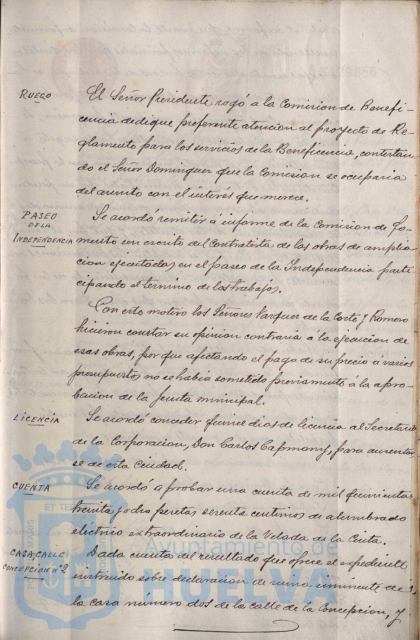 RUEGO
El Señor Presidente rogó á la Comision de Benefi-
cencia dedique preferente atencion al proyecto de Re-
glamento para los servicios de la Beneficencia, contestan-
do el Señor Dominguez que la Comision se ocuparia
del asunto con el interés que merece.
PASEO
DE LA
INDEPENDENCIA
Se acordó remitir á informe de la Comision de Fo-
mento un escrito del Contratista de las obras de amplia-
cion ejecutadas en el paseo de la Independencia parti-
cipando el termino de los trabajos.
Con este motivo los Señores Vazquez de la Corte y Romero
hicieron constar su opinion contraria á la ejecucion de
esas obras, por que afectando el pago de su precio á varios
presupuestos, no se habia sometido previamente á la apro-
bacion de la Junta municipal.
LICENCIA
Se acordó conceder quince dias de licencia al Secretario
de la Corporacion, Don Carlos Capmany, para ausentar-
se de esta Ciudad.
CUENTA
Se acordó aprobar una cuenta de mil quinientas
treinta y dos pesetas sesenta centimos de alumbrado
eléctrico extraordinario de la Velada de la Cinta.
CASA CALLE
CONCEPCION nº 2
Dada cuenta del resultado que ofrece el expediente
instruido sobre declaracion de ruina inminente de
la casa número dos de la calle de la Concepcion, y
Ayuntamiento de
HUELVA